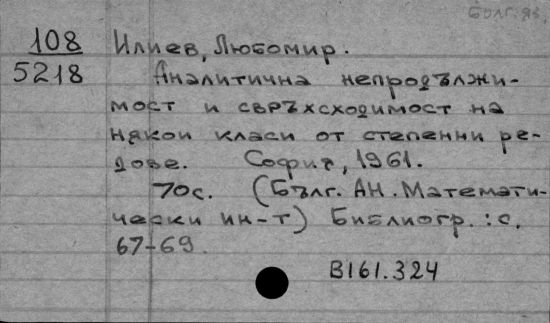 Бълг. яз.
108
5218
Илиев, Любомир.
Аналитична непродължи-
мост и свръхсходимост на
някои класи от степенни ре-
дове. София, 1961.
70с. (Бълг. АН. Математи-
чески ин-т) Библиогр.: с.
67-69.
B161.324